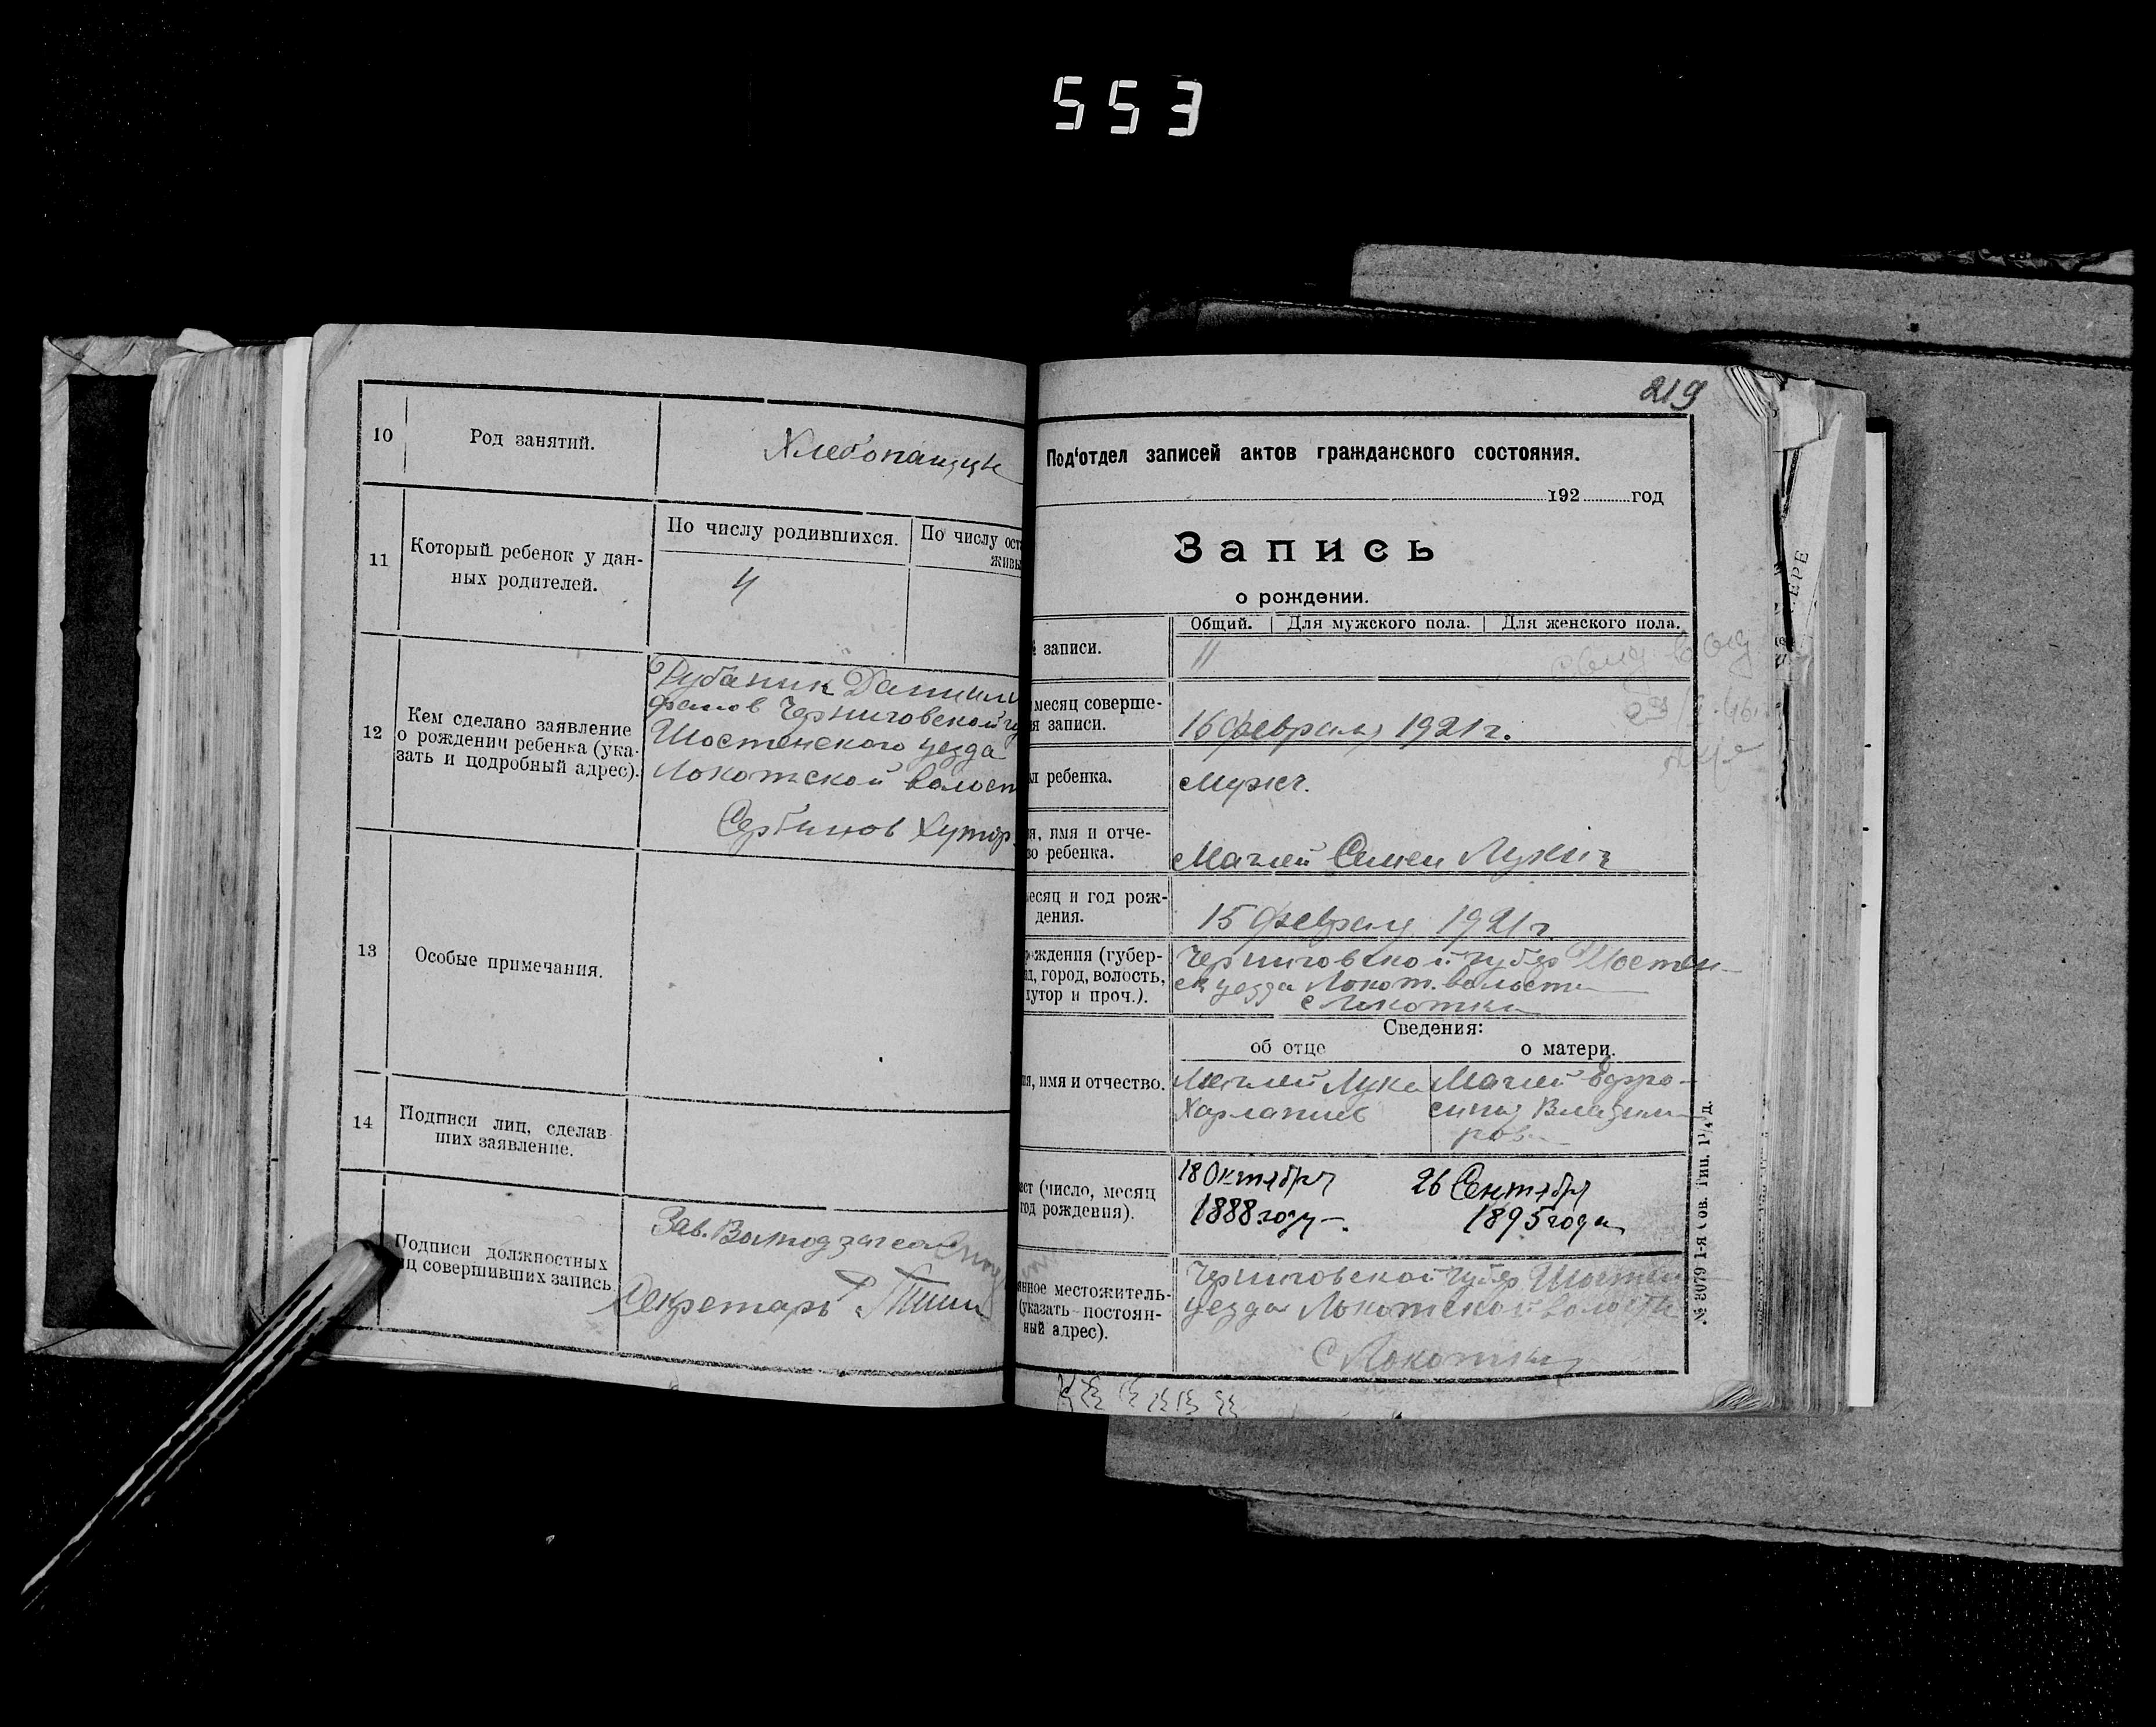 553
10
Род занятий.
Хлебопашцы
11
Который ребенок у дан-
ных родителей.
По числу родившихся.
По числу ост
живы
4
12
Кем сделано заявление
о рождении ребенка (ука-
зать и подробный адрес).
Рубаник Даниил
Черниговской гу
Шостенского уезда
Локотской волост
Сербинов Хутор
13
Особые примечания.
14
Подписи лиц, сделав
ших заявление.
Подписи должностных
иц совершивших запись
Зав.
Секретарь
219
Под'отдел записей актов гражданского состояния.
192 год
Запись
о рождении.
Общий. Для мужского пола. Для женского пола.
записи.
11
месяц соверше-
я записи.
16 февраля 1921 г.
л ребенка.
Мужс.
я, имя и отче-
во ребенка.
Маглей Семен Лукич
есяц и год рож-
дения.
15 февраля 1921 г.
рождения (губер-
д, город, волость,
хутор и проч.).
Черниговской губер Шостен-
ск уезда Локот. волости
с Локотки
Сведения:
об отце
о матери.
ия, имя и отчество.
Маглей Лука
Харлапиев
Маглей Ефро-
синия Владими
ров
аст (число, месяц
год рождения).
18 Октября
1888 году
26 Сентября
1895 года
янное местожитель-
(указать постоян-
ный адрес).
Черниговской губер Шостен
уезда Локотской волости
с Локотки
№ 8079 1-я Сов. тип. 1¼ д.